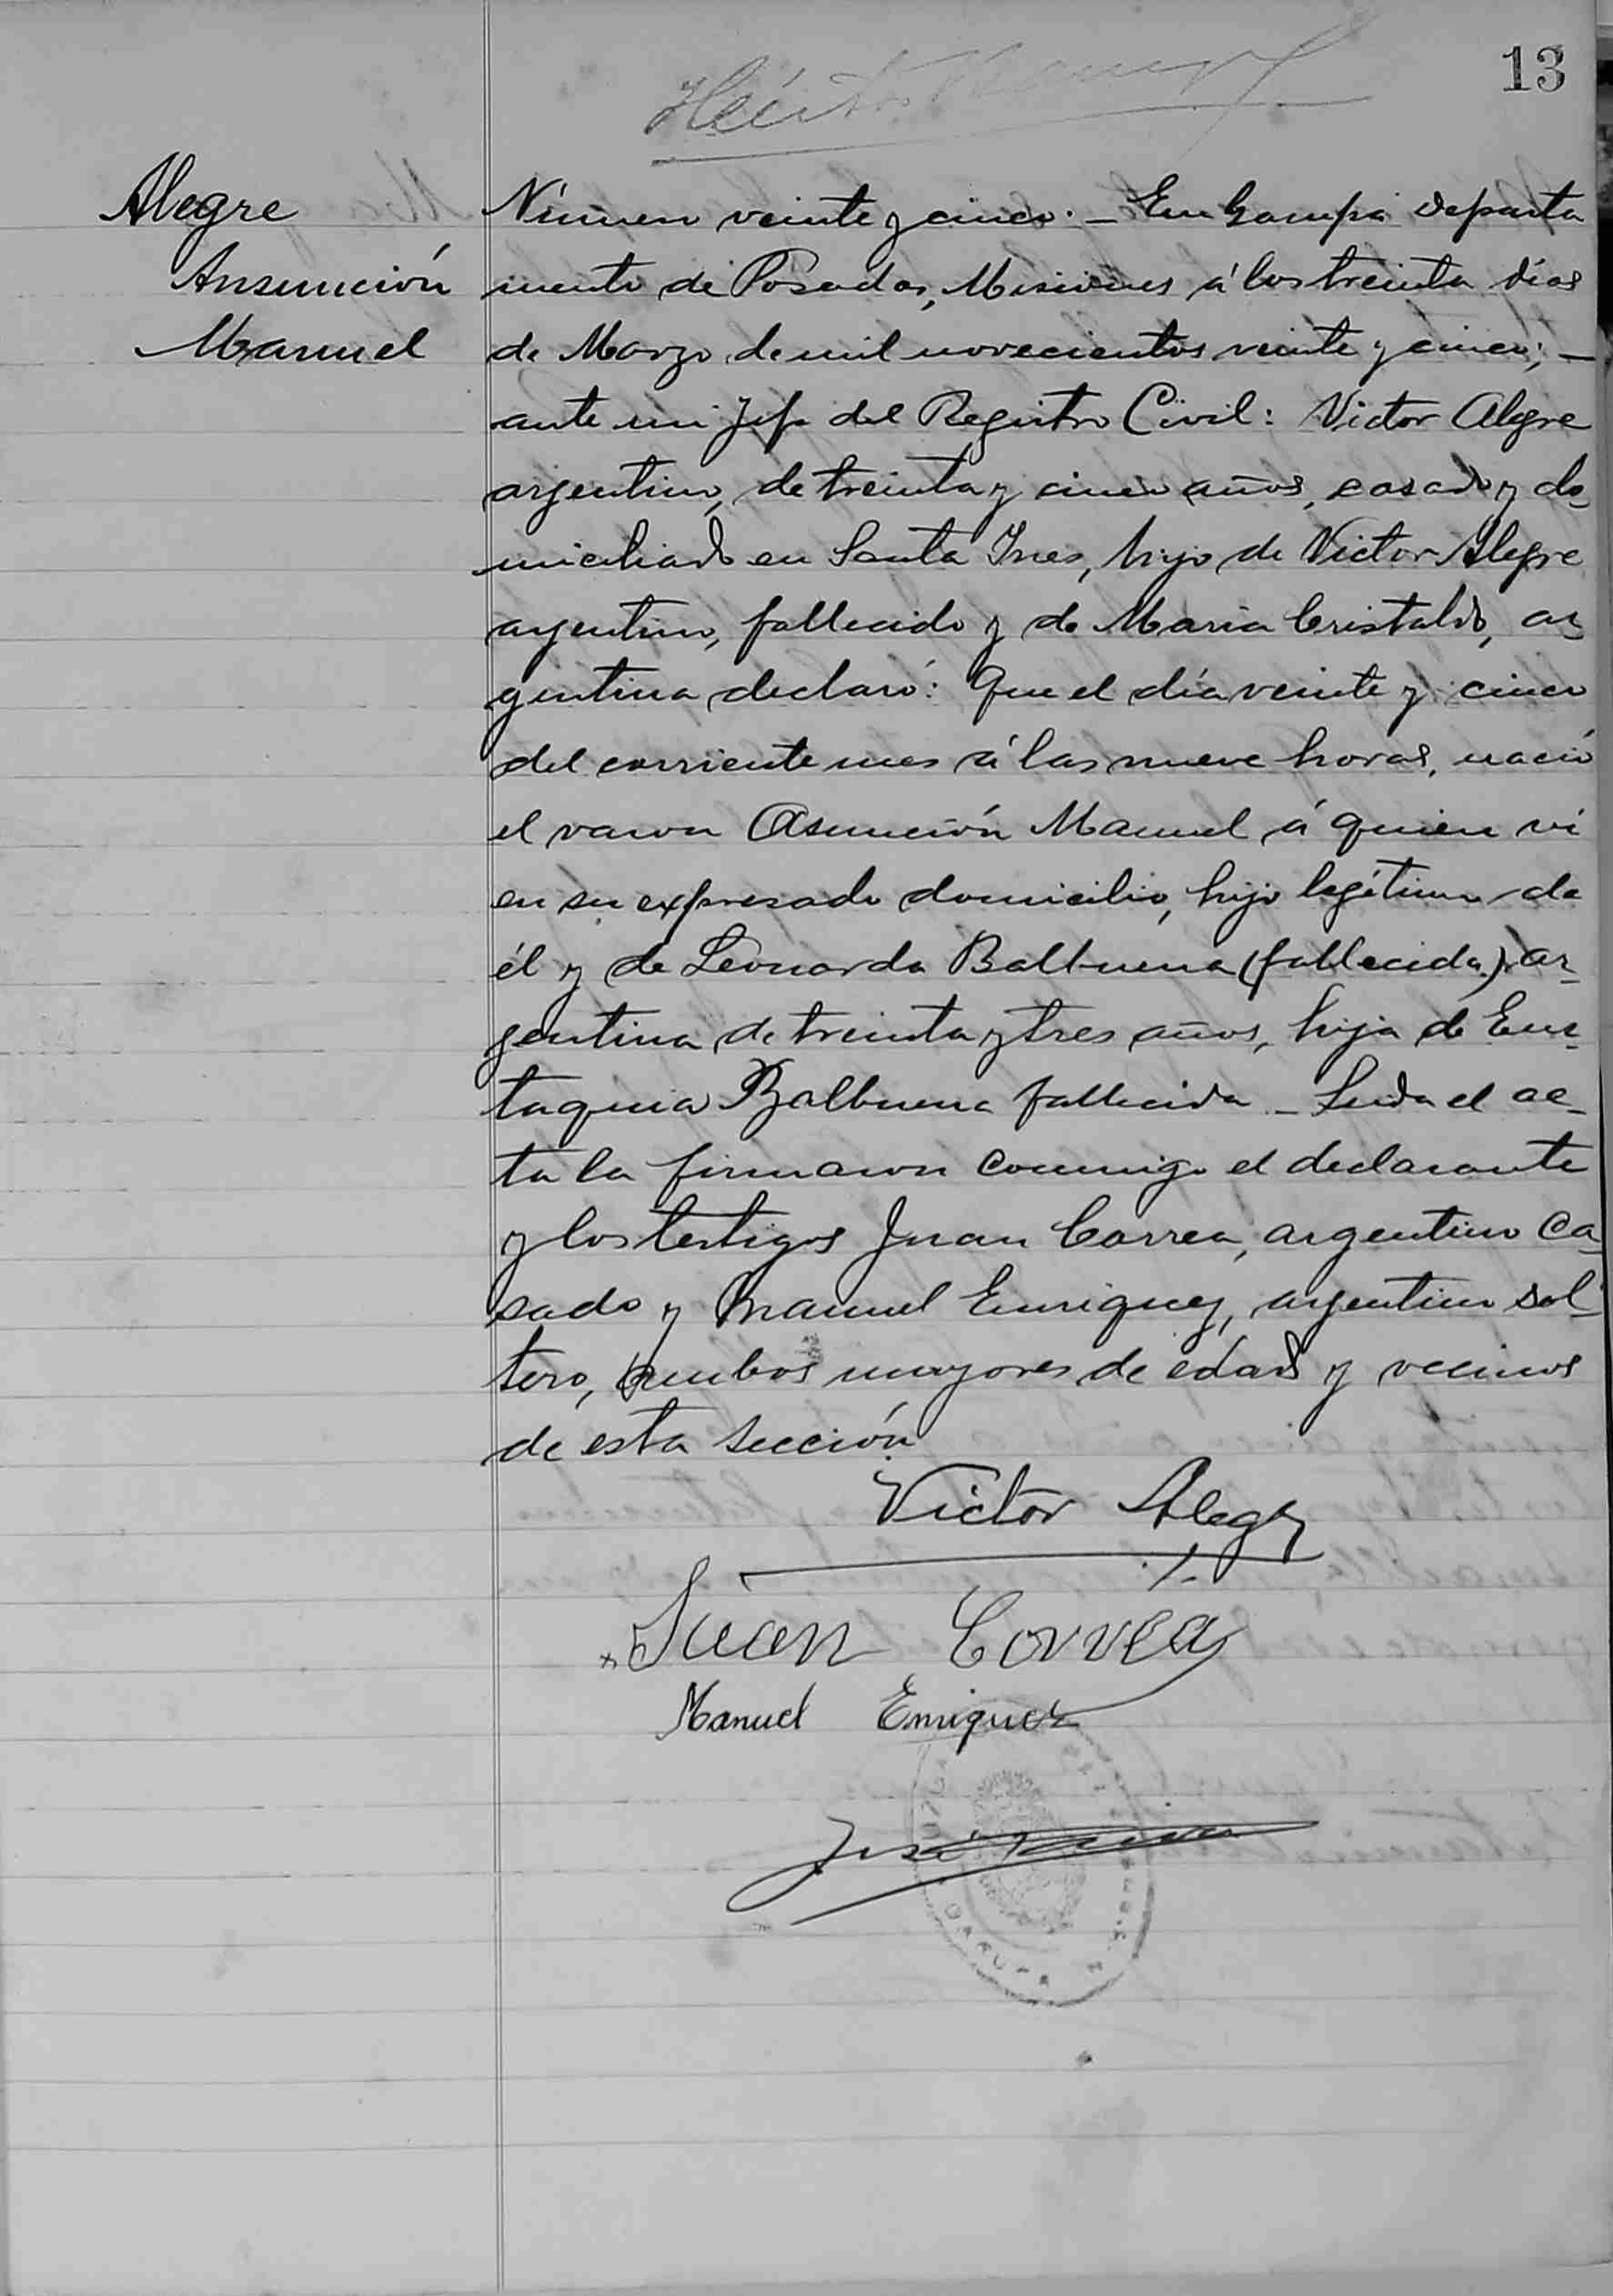 13
Alegre
Ansunción
Manuel
Número veinte y cinco. — En Garupá departa
mento de Posadas, Misiones á los treinta días
de Marzo de mil novecientos veinte y cinco; —
ante mi Jefe del Registro Civil: Victor Alegre
argentino, de treinta y cinco años, casado y do_
miciliado en Santa Ines, hijo de Victor Alegre
argentino, fallecido y de Maria Cristaldo, ar_
gentina declaró: Que el día veinte y cinco
del corriente mes á las nueve horas, nació
el varon Asunción Manuel á quien vi
en su expresado domicilio, hijo legítimo de
él y de Leonarda Balbuena (fallecida) ar_
gentina de treinta y tres años, hija de Eus_
taquia Balbuena fallecida _ Leida el ac_
ta la firmaron conmigo el declarante
y los testigos Juan Correa, argentino ca_
sado y Manuel Enriquez, argentino sol_
tero, ambos mayores de edad y vecinos
de esta sección
Victor Alegre
Juan Correa
Manuel Enriquez
José
GARUPA